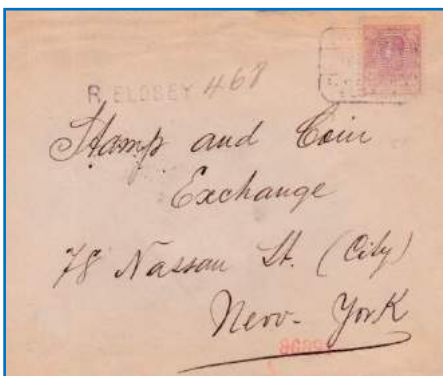 R. ELOBEY 468
Stamp and Coin
Exchange
78 Nassau St. (City)
New-York